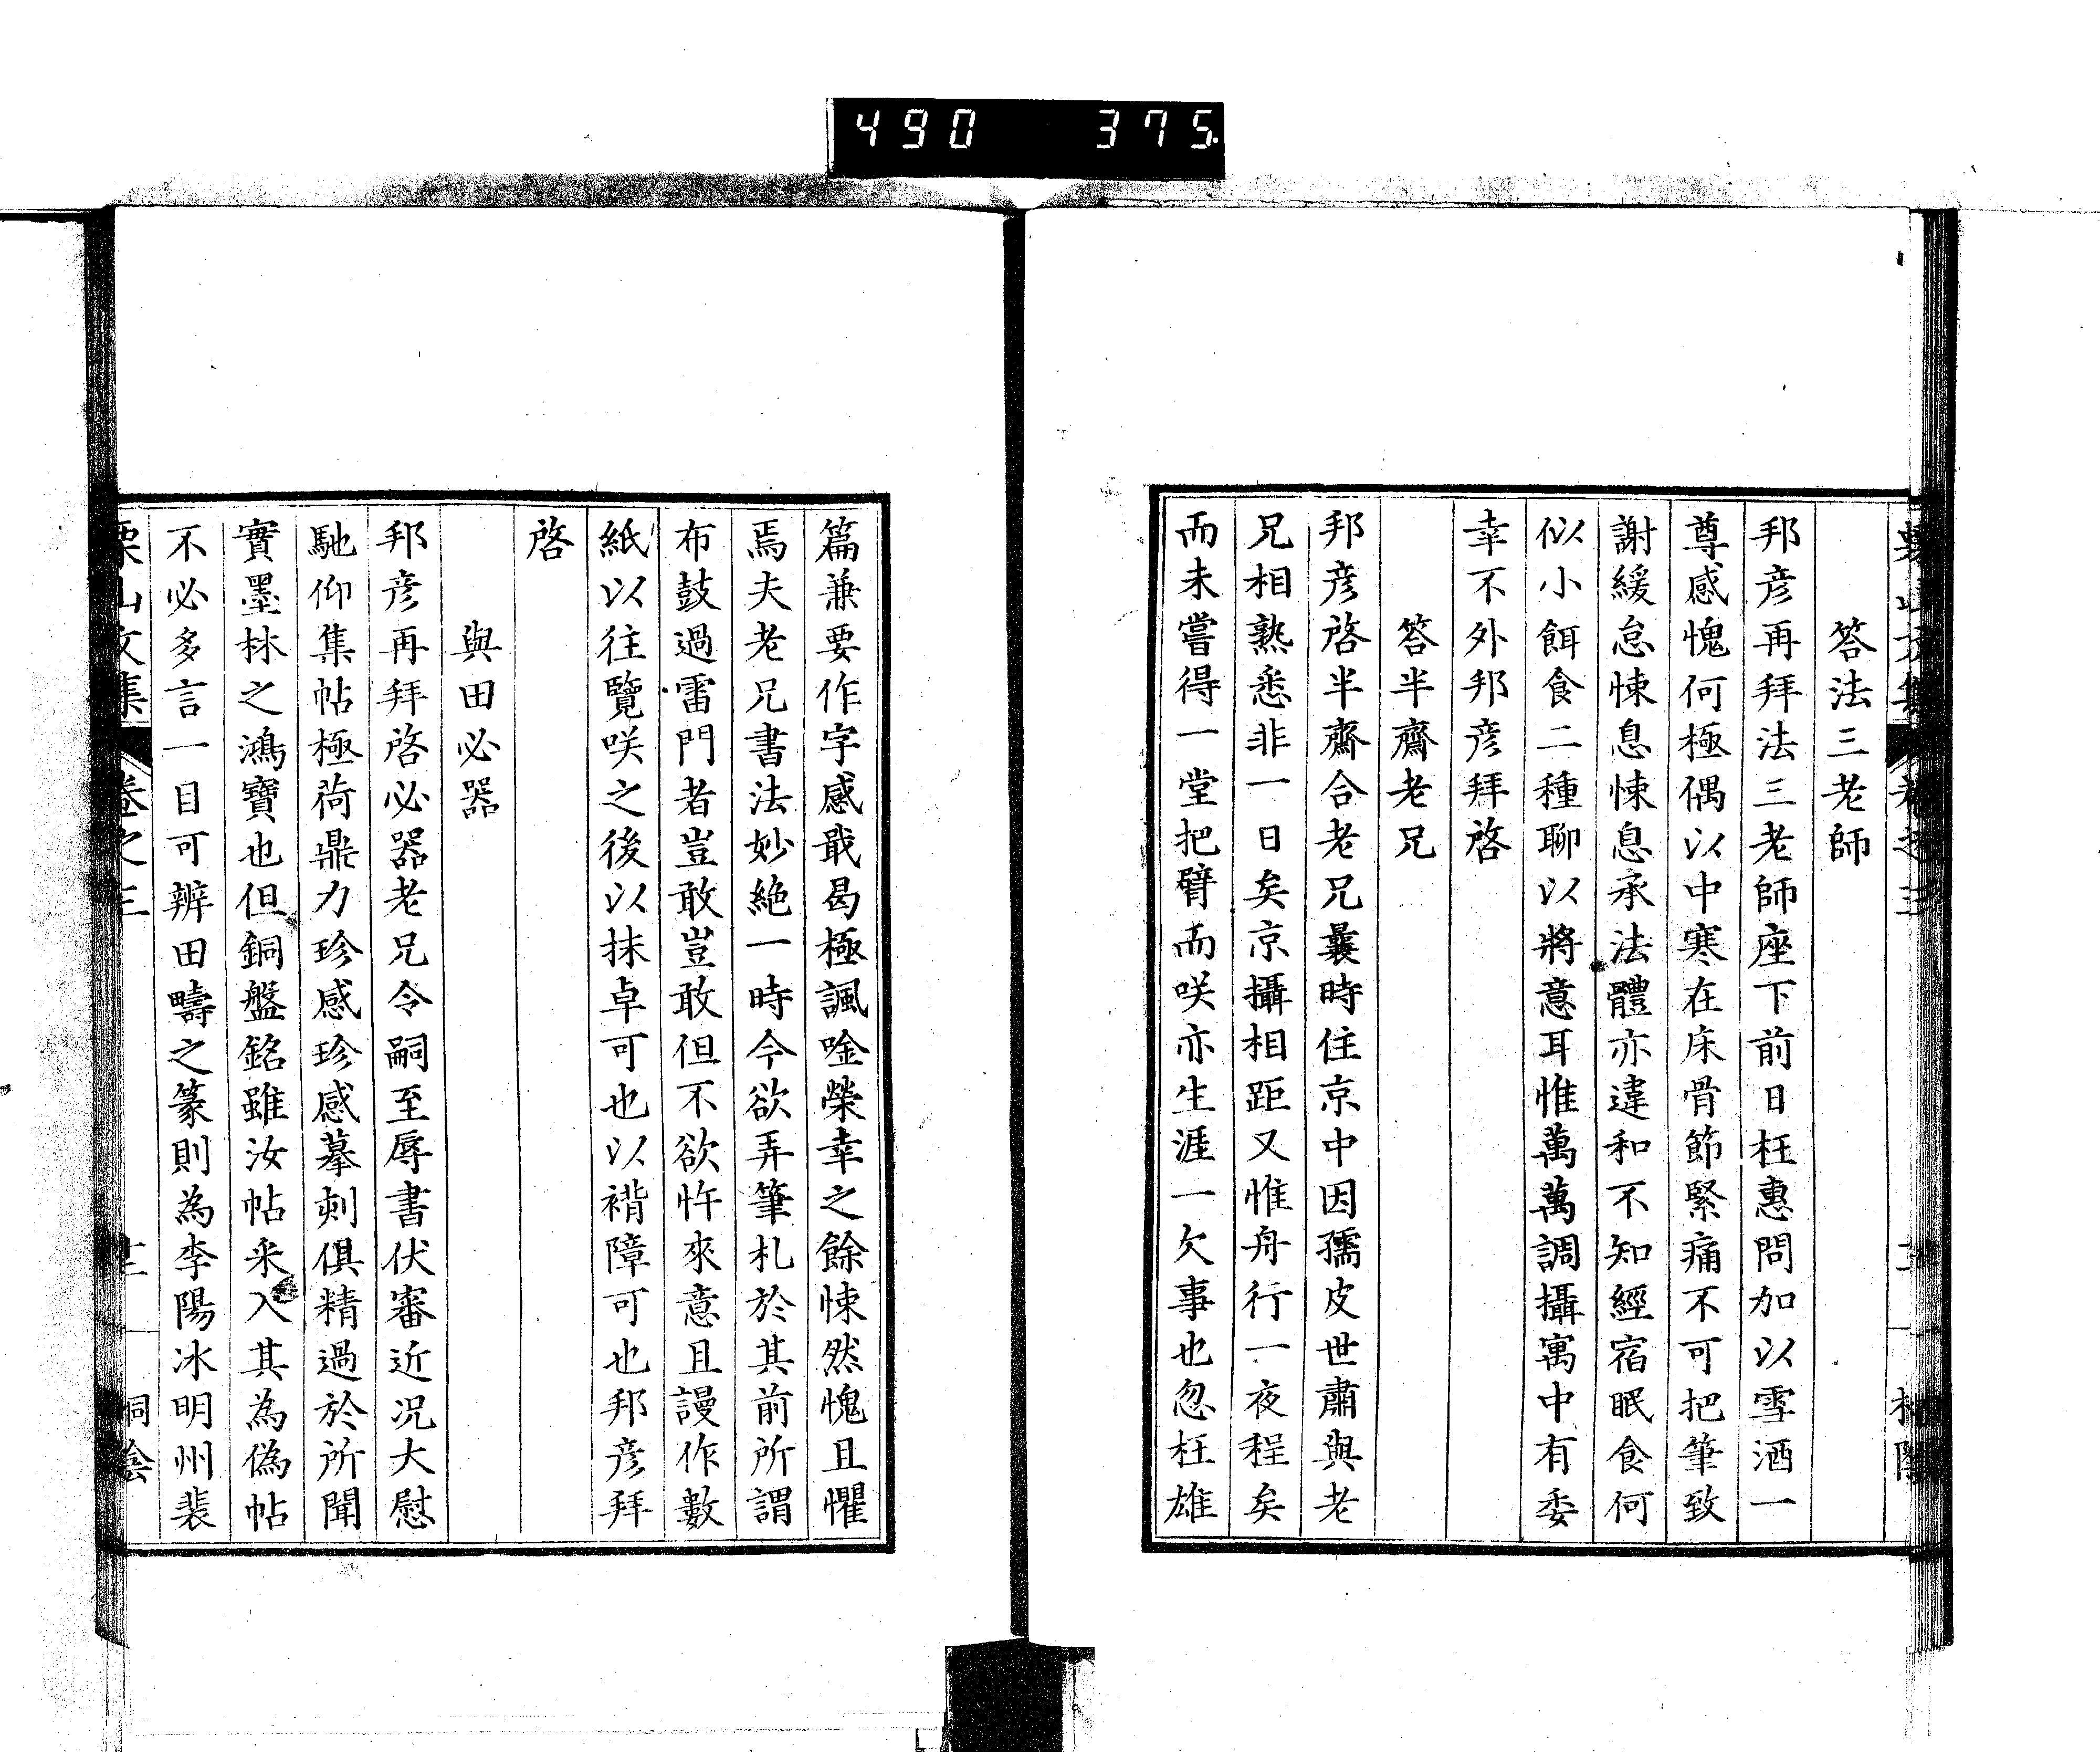 490 375
答法三老師
邦彦再拜法三老師座下前日枉惠問加以雪酒一
尊感愧何極偶以中寒在床骨節緊痛不可把筆致
謝緩怠悚息悚息承法體亦違和不知經宿眠食何
似小餌食二種聊以將意耳惟萬萬調攝寓中有委
幸不外邦彦拜啓
答半齋老兄
邦彦啓半齋合老兄曩時住京中因孺皮世肅與老
兄相熟悉非一日矣京攝相距又惟舟行一夜程矣
而未嘗得一堂把臂而咲亦生涯一欠事也忽枉雄
篇兼要作字感戢曷極諷唫榮幸之餘悚然愧且懼
焉夫老兄書法妙絶一時今欲弄筆札於其前所謂
布鼓過雷門者豈敢豈敢但不欲忤來意且謾作數
紙以往覽咲之後以抹卓可也以褙障可也邦彦拜
啓
與田必器
邦彦再拜啓必器老兄令嗣至辱書伏審近况大慰
馳仰集帖極荷鼎力珍感珍感摹刺俱精過於所聞
實墨林之鴻寶也但銅盤銘雖汝帖釆入其為偽帖
不必多言一目可辨田疇之篆則為李陽冰明州裴
栗山文集 卷之三